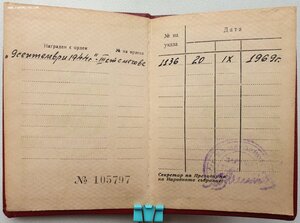 Награден с орден
№ на ордена
"9 септември 1944 г." - III ст. с мечове
№ 105797
№ на указа
Дата
1136 20 IX 1969 г.
Секретар на Президиума
на Народното събрание: